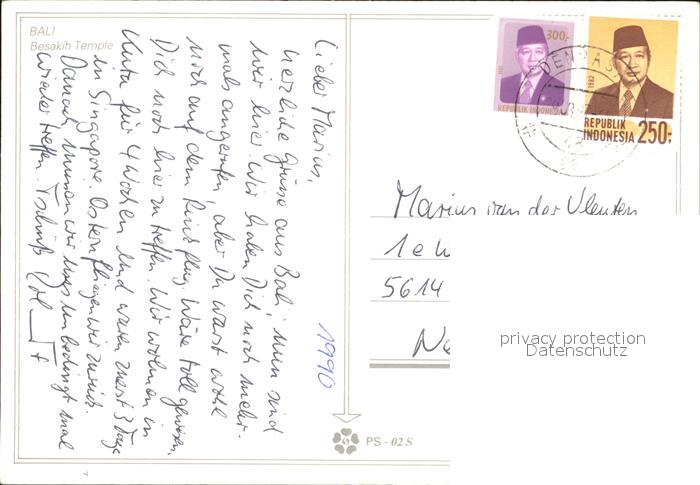 BALI
Besakih Temple
Lieber Marius,
herzliche Grüsse aus Bali, nun sind
wir hier. Wir haben Dich noch mehr-
mals angerufen, aber Du warst wohl
noch auf dem Rückflug. Wäre toll gewesen,
Dich noch hier zu treffen. Wir wohnen in
Kuta für 4 Wochen und waren zuerst 3 Tage
in Singapore. Ostern fliegen wir zurück.
Danach müssen wir uns unbedingt mal
wieder treffen. Tschüß
1990
300,-
REPUBLIK INDONESIA
DENPASAR
1982
REPUBLIK
INDONESIA 250,-
Marius van der Vleuten
1e W
5614
Ne
privacy protection
Datenschutz
PS - 02 S